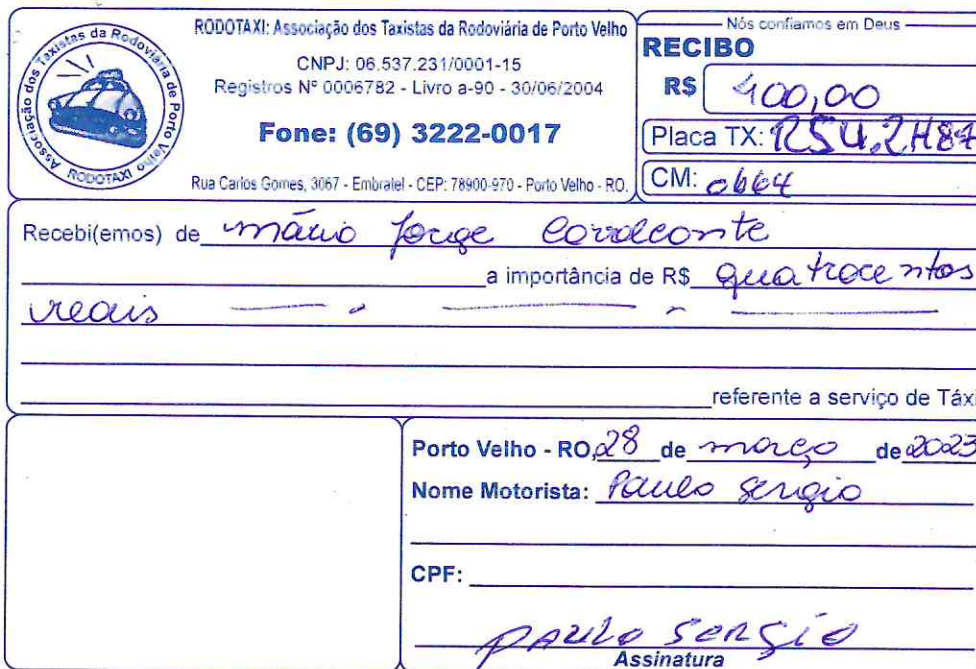 Associação dos Taxistas da Rodoviária de Porto Velho
RODOTAXI
RODOTAXI: Associação dos Taxistas da Rodoviária de Porto Velho
CNPJ: 06.537.231/0001-15
Registros Nº 0006782 - Livro a-90 - 30/06/2004
Fone: (69) 3222-0017
Rua Carlos Gomes, 3067 - Embratel - CEP: 78900-970 - Porto Velho - RO.
Nós confiamos em Deus
RECIBO
R$ 400,00
Placa TX: RSU.2H87
CM: 0664
Recebi(emos) de mário Jorge Cavalcante
a importância de R$ quatrocentos
reais
referente a serviço de Táxi
Porto Velho - RO, 28 de março de 2023
Nome Motorista: Paulo Sergio
CPF:
Paulo Sergio
Assinatura